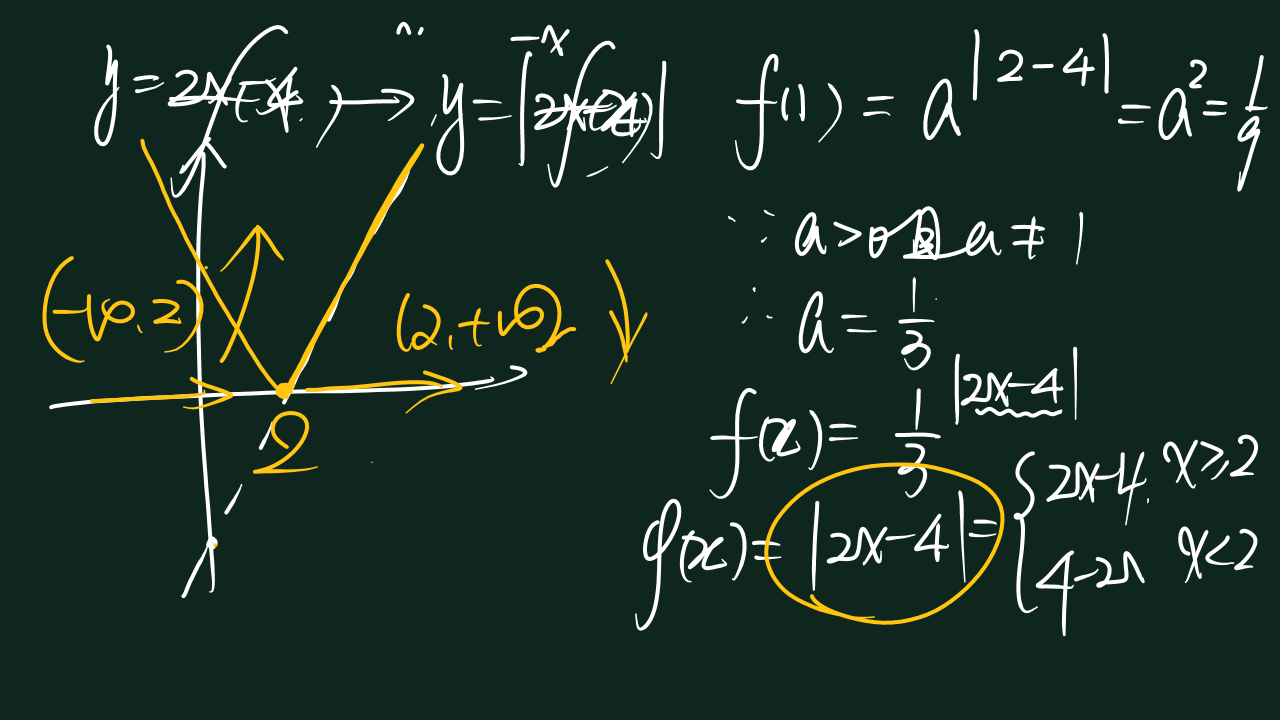 f(1) = a^|2-4| = a² = 1/9
∵ a>0且a≠1
∴ a = 1/3
f(x) = 1/3^|2x-4|
g(x) = |2x-4| = { 2x-4, x≥2
4-2x x<2
(-∞, 2)
(2, +∞)
2